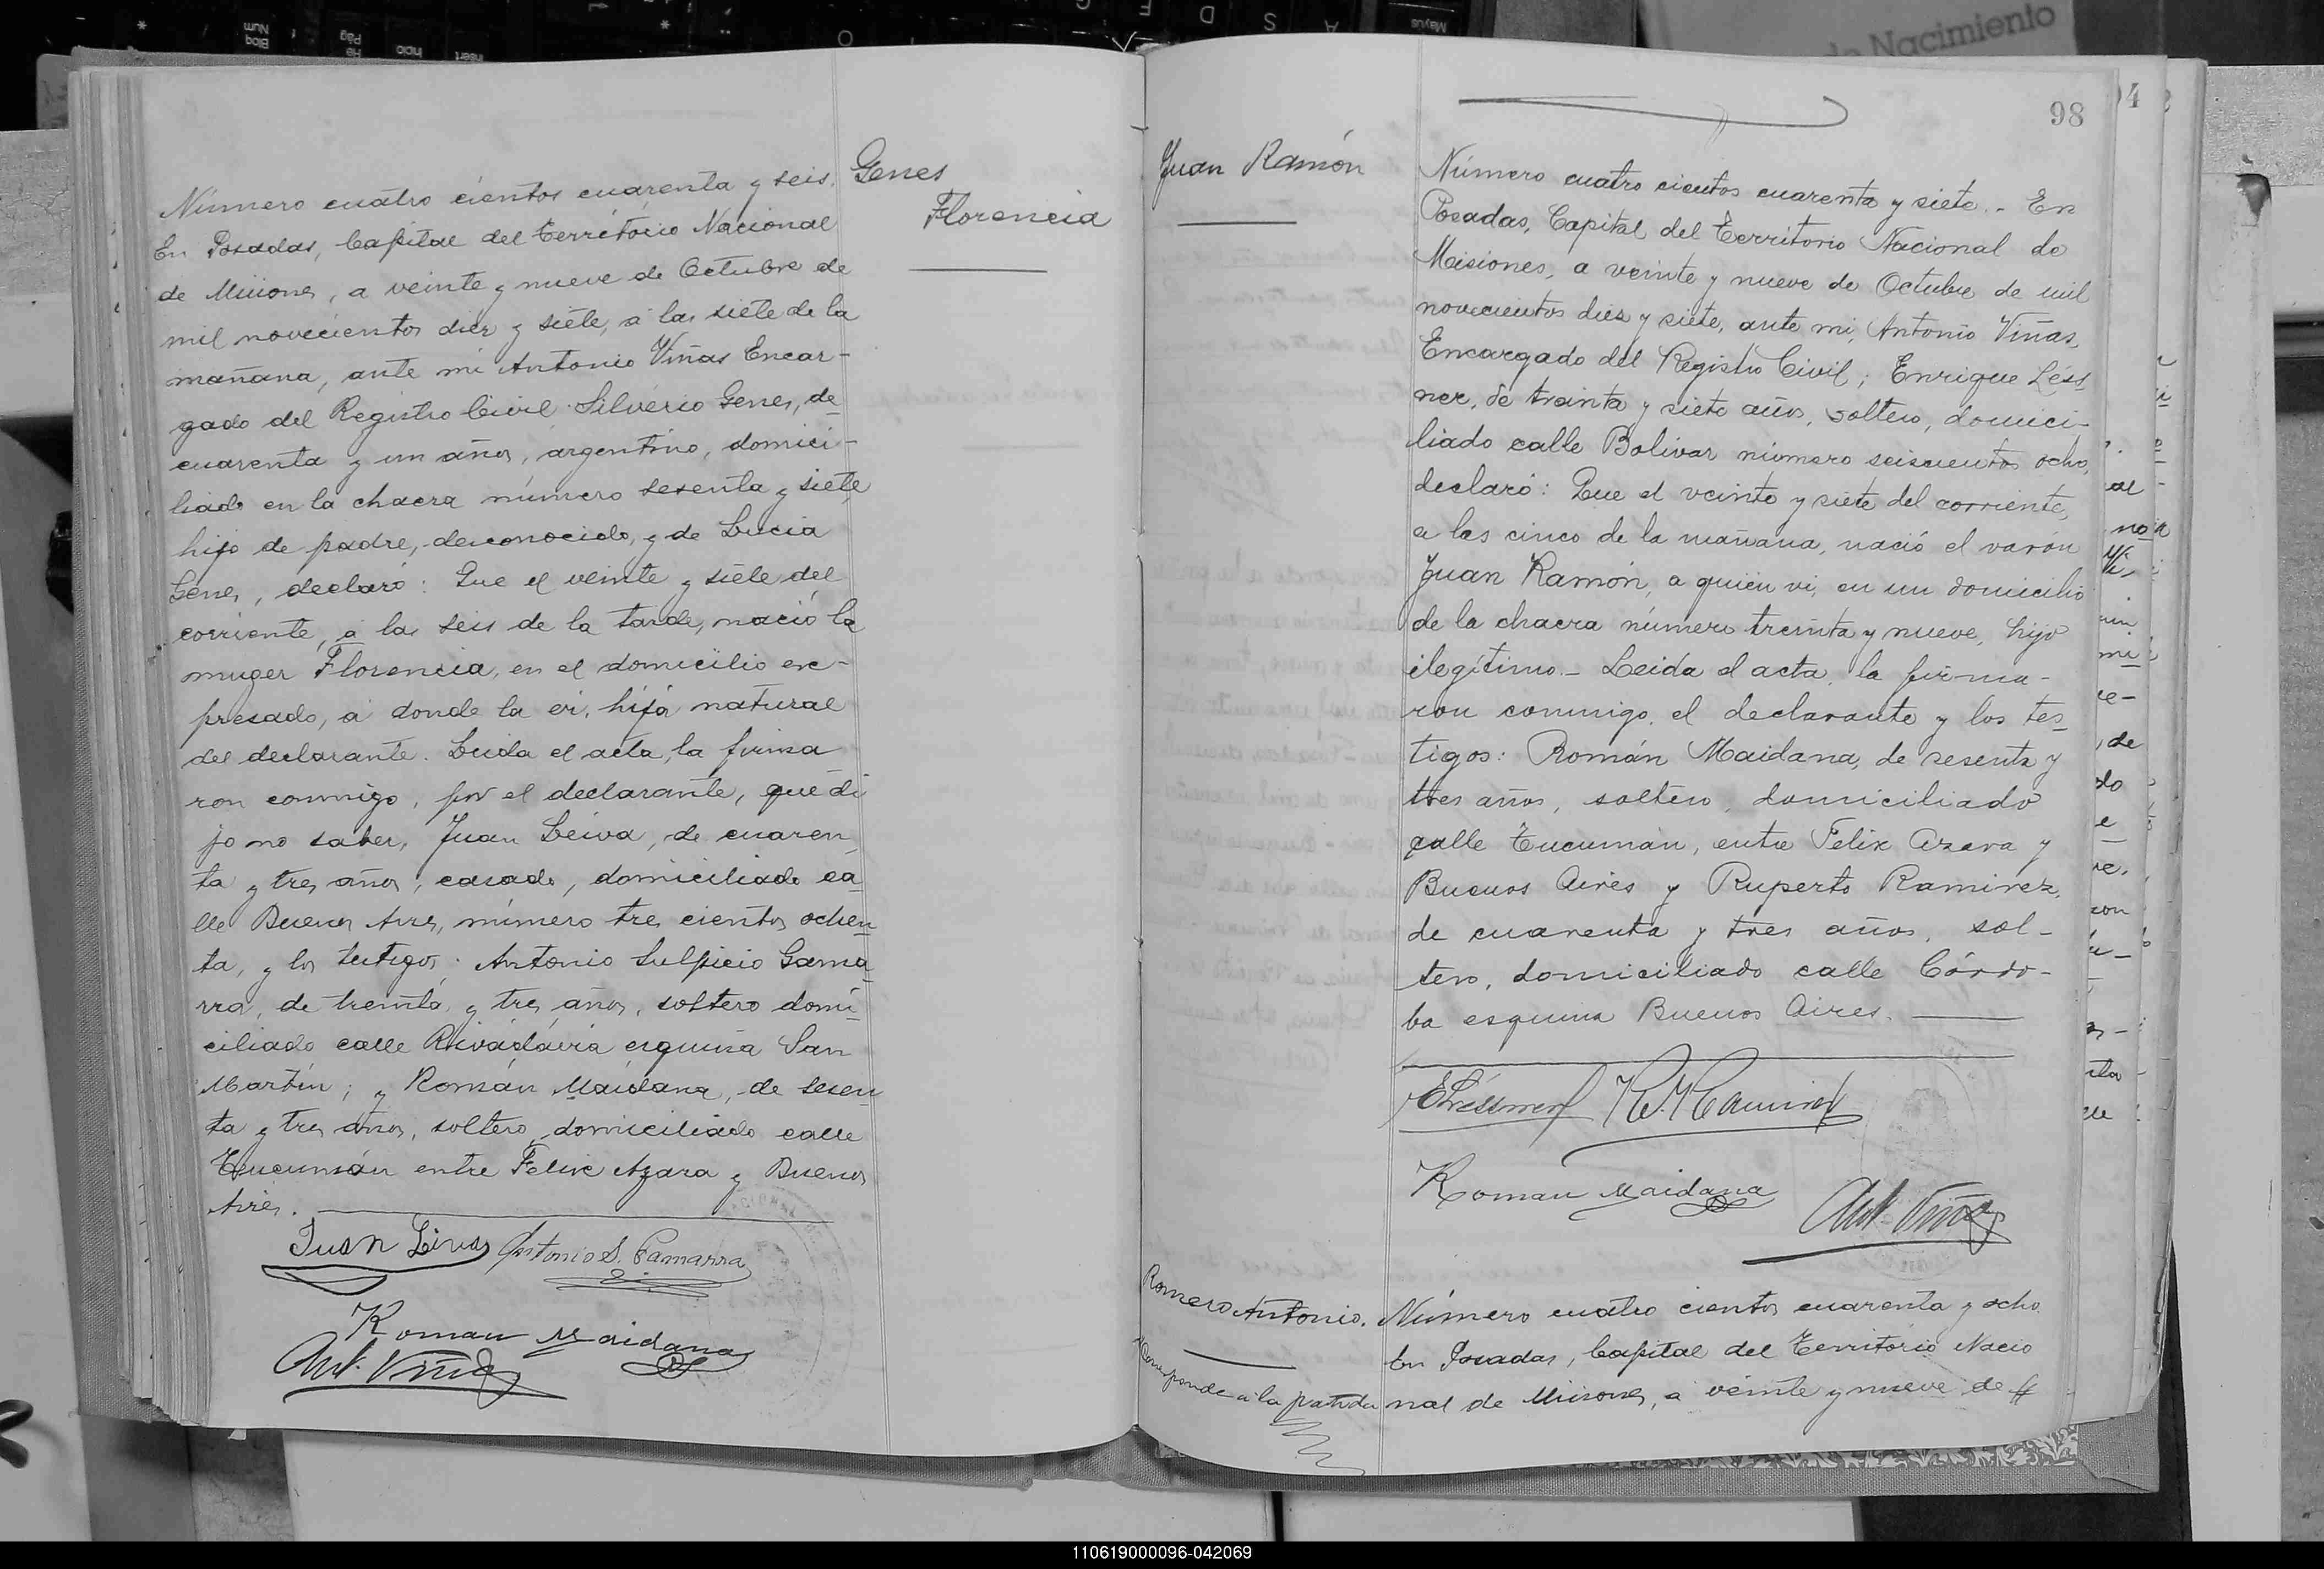 Genes
Florencia
Número cuatro cientos cuarenta y seis.
En Posadas, Capital del Territorio Nacional
de Misiones, a veinte y nueve de Octubre de
mil novecientos diez y siete, a las siete de la
mañana, ante mi Antonio Viñas Encar-
gado del Registro Civil Silverio Genes, de
cuarenta y un años, argentino, domici-
liado en la chacra número sesenta y siete
hijo de padre, desconocido, y de Lucia
Genes, declaró: Que el veinte y siete del
corriente, a las seis de la tarde, nació la
muger Florencia, en el domicilio ex-
presado, a donde la vi, hija natural
del declarante. Leida el acta, la firma
ron conmigo, por el declarante, que di
jo no saber, Juan Leiva, de cuaren
ta y tres años, casado, domiciliado ca
lle Buenos Aires, número tres cientos ochen
ta, y los testigos: Antonio Sulpicio Gama
rra, de treinta y tres años, soltero domi
ciliado calle Rivadavia esquina San
Martín; y Román Maidana, de sesen
ta y tres años, soltero, domiciliado calle
Tucumán entre Felix Azara y Buenos
Aires.
Juan Leiva Antonio S. Gamarra
Roman Maidana
Ant. Viñas
98
Juan Ramón
Número cuatro cientos cuarenta y siete.- En
Posadas, Capital del Territorio Nacional de
Misiones, a veinte y nueve de Octubre de mil
novecientos diez y siete, ante mi, Antonio Viñas,
Encargado del Registro Civil; Enrique Léss
ner, de treinta y siete años, soltero, domici-
liado calle Bolivar número seiscientos ocho,
declaró: Que el veinte y siete del corriente,
a las cinco de la mañana, nació el varón
Juan Ramón, a quien vi, en un domicilio
de la chacra número treinta y nueve, hijo
ilegítimo.- Leida el acta, la firma-
ron conmigo, el declarante y los tes-
tigos: Román Maidana, de sesenta y
tres años, soltero, domiciliado
calle Tucumán, entre Felix Azara y
Buenos Aires y Ruperto Ramirez,
de cuarenta y tres años, sol-
tero, domiciliado calle Córdo-
ba esquina Buenos Aires.
ELéssner R. Ramirez
Roman Maidana
Ant. Viñas
Romero Antonio.
Corresponde a la partida
Número cuatro cientos cuarenta y ocho
En Posadas, Capital del Territorio Nacio
nal de Misiones, a veinte y nueve de
110619000096-042069